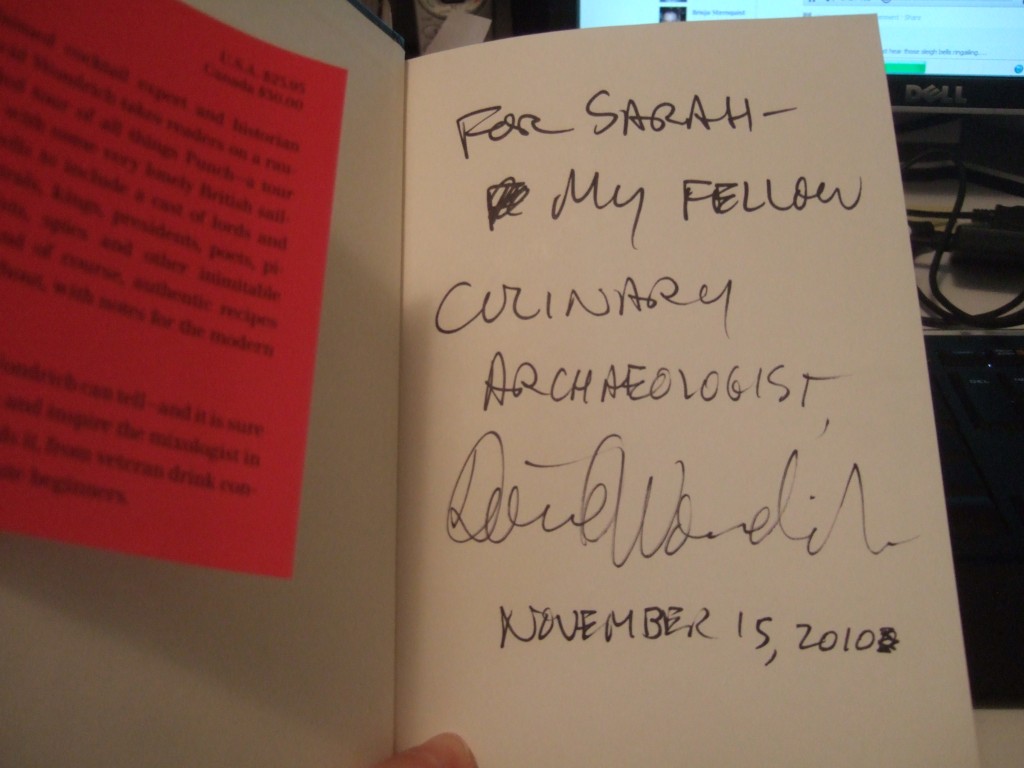 U.S.A. $25.95
Canada $30.00
cocktail expert and historian
Wondrich takes readers on a rau-
tour of all things Punch—a tour
with some very lonely British sail-
to include a cast of lords and
kings, presidents, poets, pi-
spies and other inimitable
of course, authentic recipes
with notes for the modern
Wondrich can tell—and it is sure
and inspire the mixologist in
it, from veteran drink con-
beginners.
FOR SARAH—
MY FELLOW
CULINARY
ARCHAEOLOGIST,
David Wondrich
NOVEMBER 15, 2010
DELL